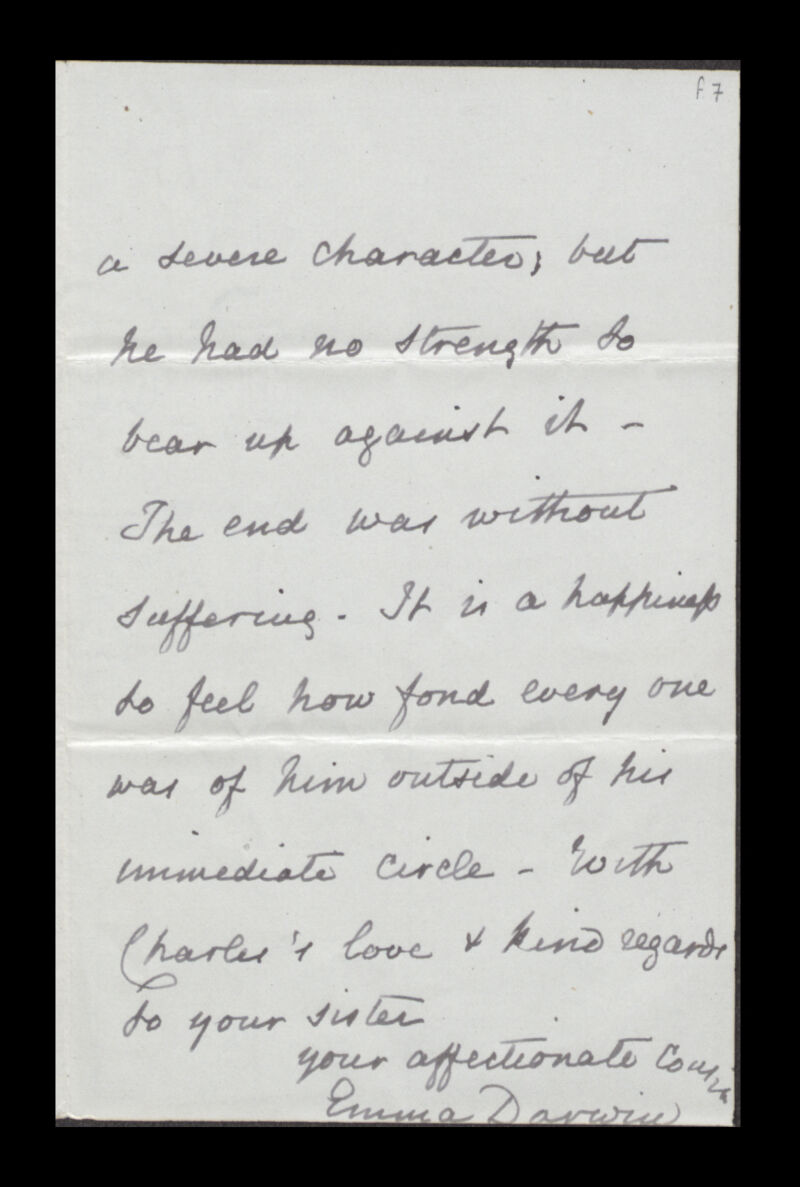 f. 7
a severe character; but
he had no strength to
bear up against it –
The end was without
suffering. It is a happiness
to feel how fond every one
was of him outside of his
immediate circle – With
Charles's love & kind regards
to your sister
your affectionate Cousin
Emma Darwin